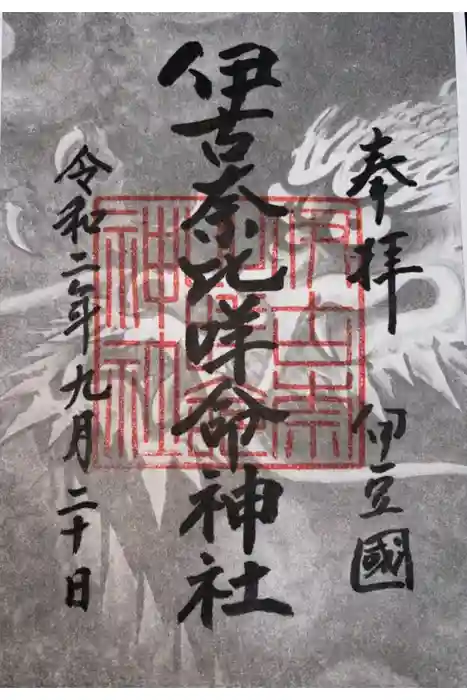 奉拝
伊豆國
伊古奈比咩命神社
令和二年九月二十日
伊古奈比咩命神社